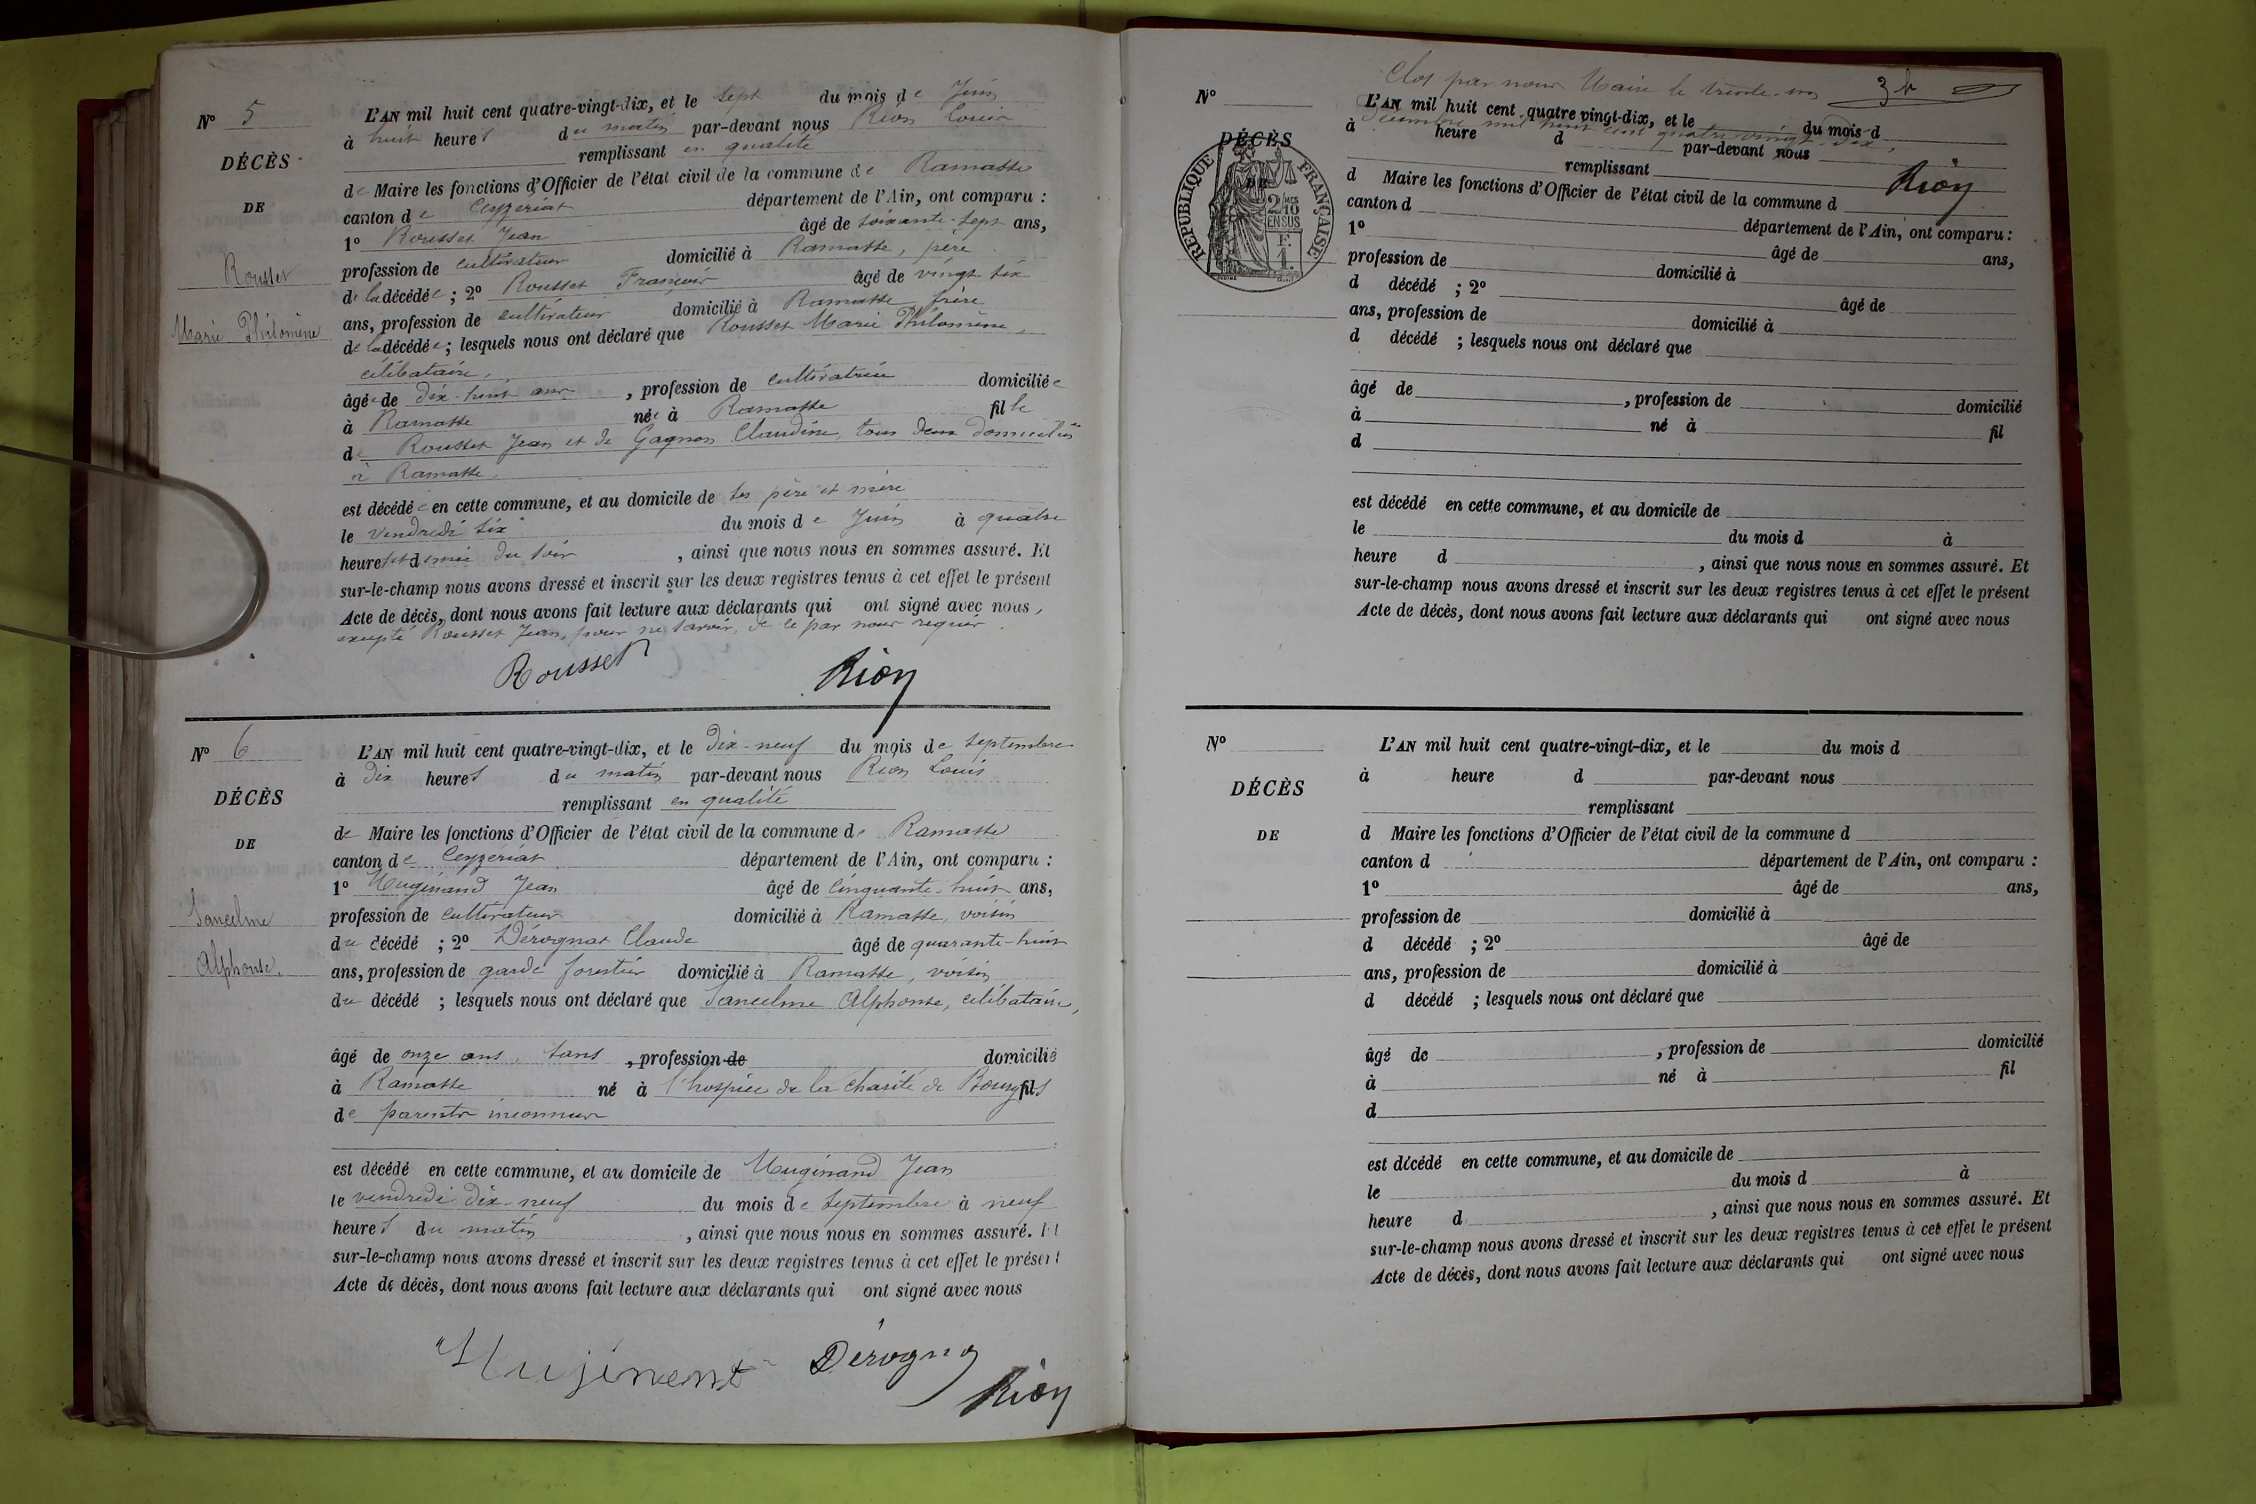 N° 5
DÉCÈS
DE
Rousset
Marie Philomène
L'AN mil huit cent quatre-vingt-dix, et le sept du mois de Juin
à huit heures du matin par-devant nous Rion Louis
remplissant en qualité
de Maire les fonctions d'Officier de l'état civil de la commune de Ramasse
canton de Ceyzériat département de l'Ain, ont comparu :
1° Rousset Jean âgé de soixante-sept ans,
profession de cultivateur domicilié à Ramasse, père
de la décédée ; 2° Rousset François âgé de vingt six
ans, profession de cultivateur domicilié à Ramasse frère
de la décédée ; lesquels nous ont déclaré que Rousset Marie Philomène,
célibataire,
âgée de dix-huit ans , profession de cultivatrice domiciliée
à Ramasse née à Ramasse fille
de Rousset Jean et de Gagnon Claudine, tous deux domiciliés
à Ramasse.
est décédée en cette commune, et au domicile de ses père et mère
le vendredi six du mois de Juin à quatre
heures et demie du soir , ainsi que nous nous en sommes assuré. Et
sur-le-champ nous avons dressé et inscrit sur les deux registres tenus à cet effet le présent
Acte de décès, dont nous avons fait lecture aux déclarants qui ont signé avec nous,
excepté Rousset Jean, pour ne savoir, de ce par nous requis.
Rousset Rion
N° 6
DÉCÈS
DE
Sancelme
Alphonse.
L'AN mil huit cent quatre-vingt-dix, et le dix-neuf du mois de septembre
à dix heures du matin par-devant nous Rion Louis
remplissant en qualité
de Maire les fonctions d'Officier de l'état civil de la commune de Ramasse
canton de Ceyzériat département de l'Ain, ont comparu :
1° Huginand Jean âgé de cinquante-huit ans,
profession de cultivateur domicilié à Ramasse, voisin
du décédé ; 2° Dérognat Claude âgé de quarante-huit
ans, profession de garde forestier domicilié à Ramasse, voisin
du décédé ; lesquels nous ont déclaré que Sancelme Alphonse, célibataire,
âgé de onze ans, sans , profession de domicilié
à Ramasse né à l'hospice de la charité de Bourg fils
de parents inconnus
est décédé en cette commune, et au domicile de Huginand Jean
le vendredi dix-neuf du mois de septembre à neuf
heures du matin , ainsi que nous nous en sommes assuré. Et
sur-le-champ nous avons dressé et inscrit sur les deux registres tenus à cet effet le présent
Acte de décès, dont nous avons fait lecture aux déclarants qui ont signé avec nous
Hujinent Dérogna
Rion
Clos par nous Maire le trente-un
décembre mil huit cent quatre vingt-dix,
Rion
N°
DÉCÈS
RÉPUBLIQUE FRANÇAISE
2/10 EN SUS
L'AN mil huit cent quatre vingt-dix, et le du mois d
à heure d par-devant nous
remplissant
d Maire les fonctions d'Officier de l'état civil de la commune d
canton d département de l'Ain, ont comparu :
1° âgé de ans,
profession de domicilié à
d décédé ; 2° âgé de
ans, profession de domicilié à
d décédé ; lesquels nous ont déclaré que
âgé de , profession de domicilié
à né à fil
d
est décédé en cette commune, et au domicile de
le du mois d à
heure d , ainsi que nous nous en sommes assuré. Et
sur-le-champ nous avons dressé et inscrit sur les deux registres tenus à cet effet le présent
Acte de décès, dont nous avons fait lecture aux déclarants qui ont signé avec nous
N°
DÉCÈS
DE
L'AN mil huit cent quatre-vingt-dix, et le du mois d
à heure d par-devant nous
remplissant
d Maire les fonctions d'Officier de l'état civil de la commune d
canton d département de l'Ain, ont comparu :
1° âgé de ans,
profession de domicilié à
d décédé ; 2° âgé de
ans, profession de domicilié à
d décédé ; lesquels nous ont déclaré que
âgé de , profession de domicilié
à né à fil
d
est décédé en cette commune, et au domicile de
le du mois d à
heure d , ainsi que nous nous en sommes assuré. Et
sur-le-champ nous avons dressé et inscrit sur les deux registres tenus à cet effet le présent
Acte de décès, dont nous avons fait lecture aux déclarants qui ont signé avec nous